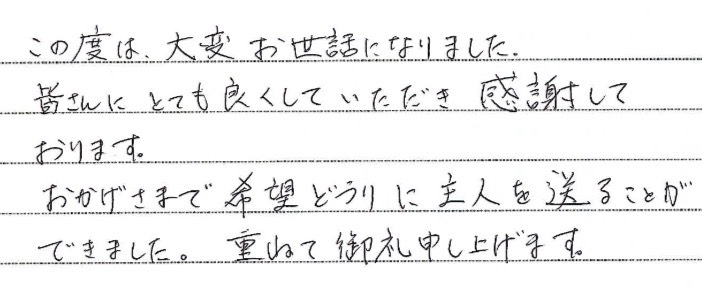 この度は、大変お世話になりました。
皆さんにとても良くしていただき感謝して
おります。
おかげさまで希望どうりに主人を送ることが
できました。重ねて御礼申し上げます。